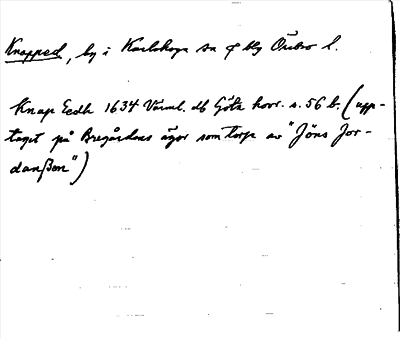 Knapped, by i Karlskoga sn o blg Örebro l.
Knap Eedh 1634 Värml. db Göta hovr. s. 56 b. (upp-
taget på Bregårdens ägor som torp av "Jöns Jor-
danßon")